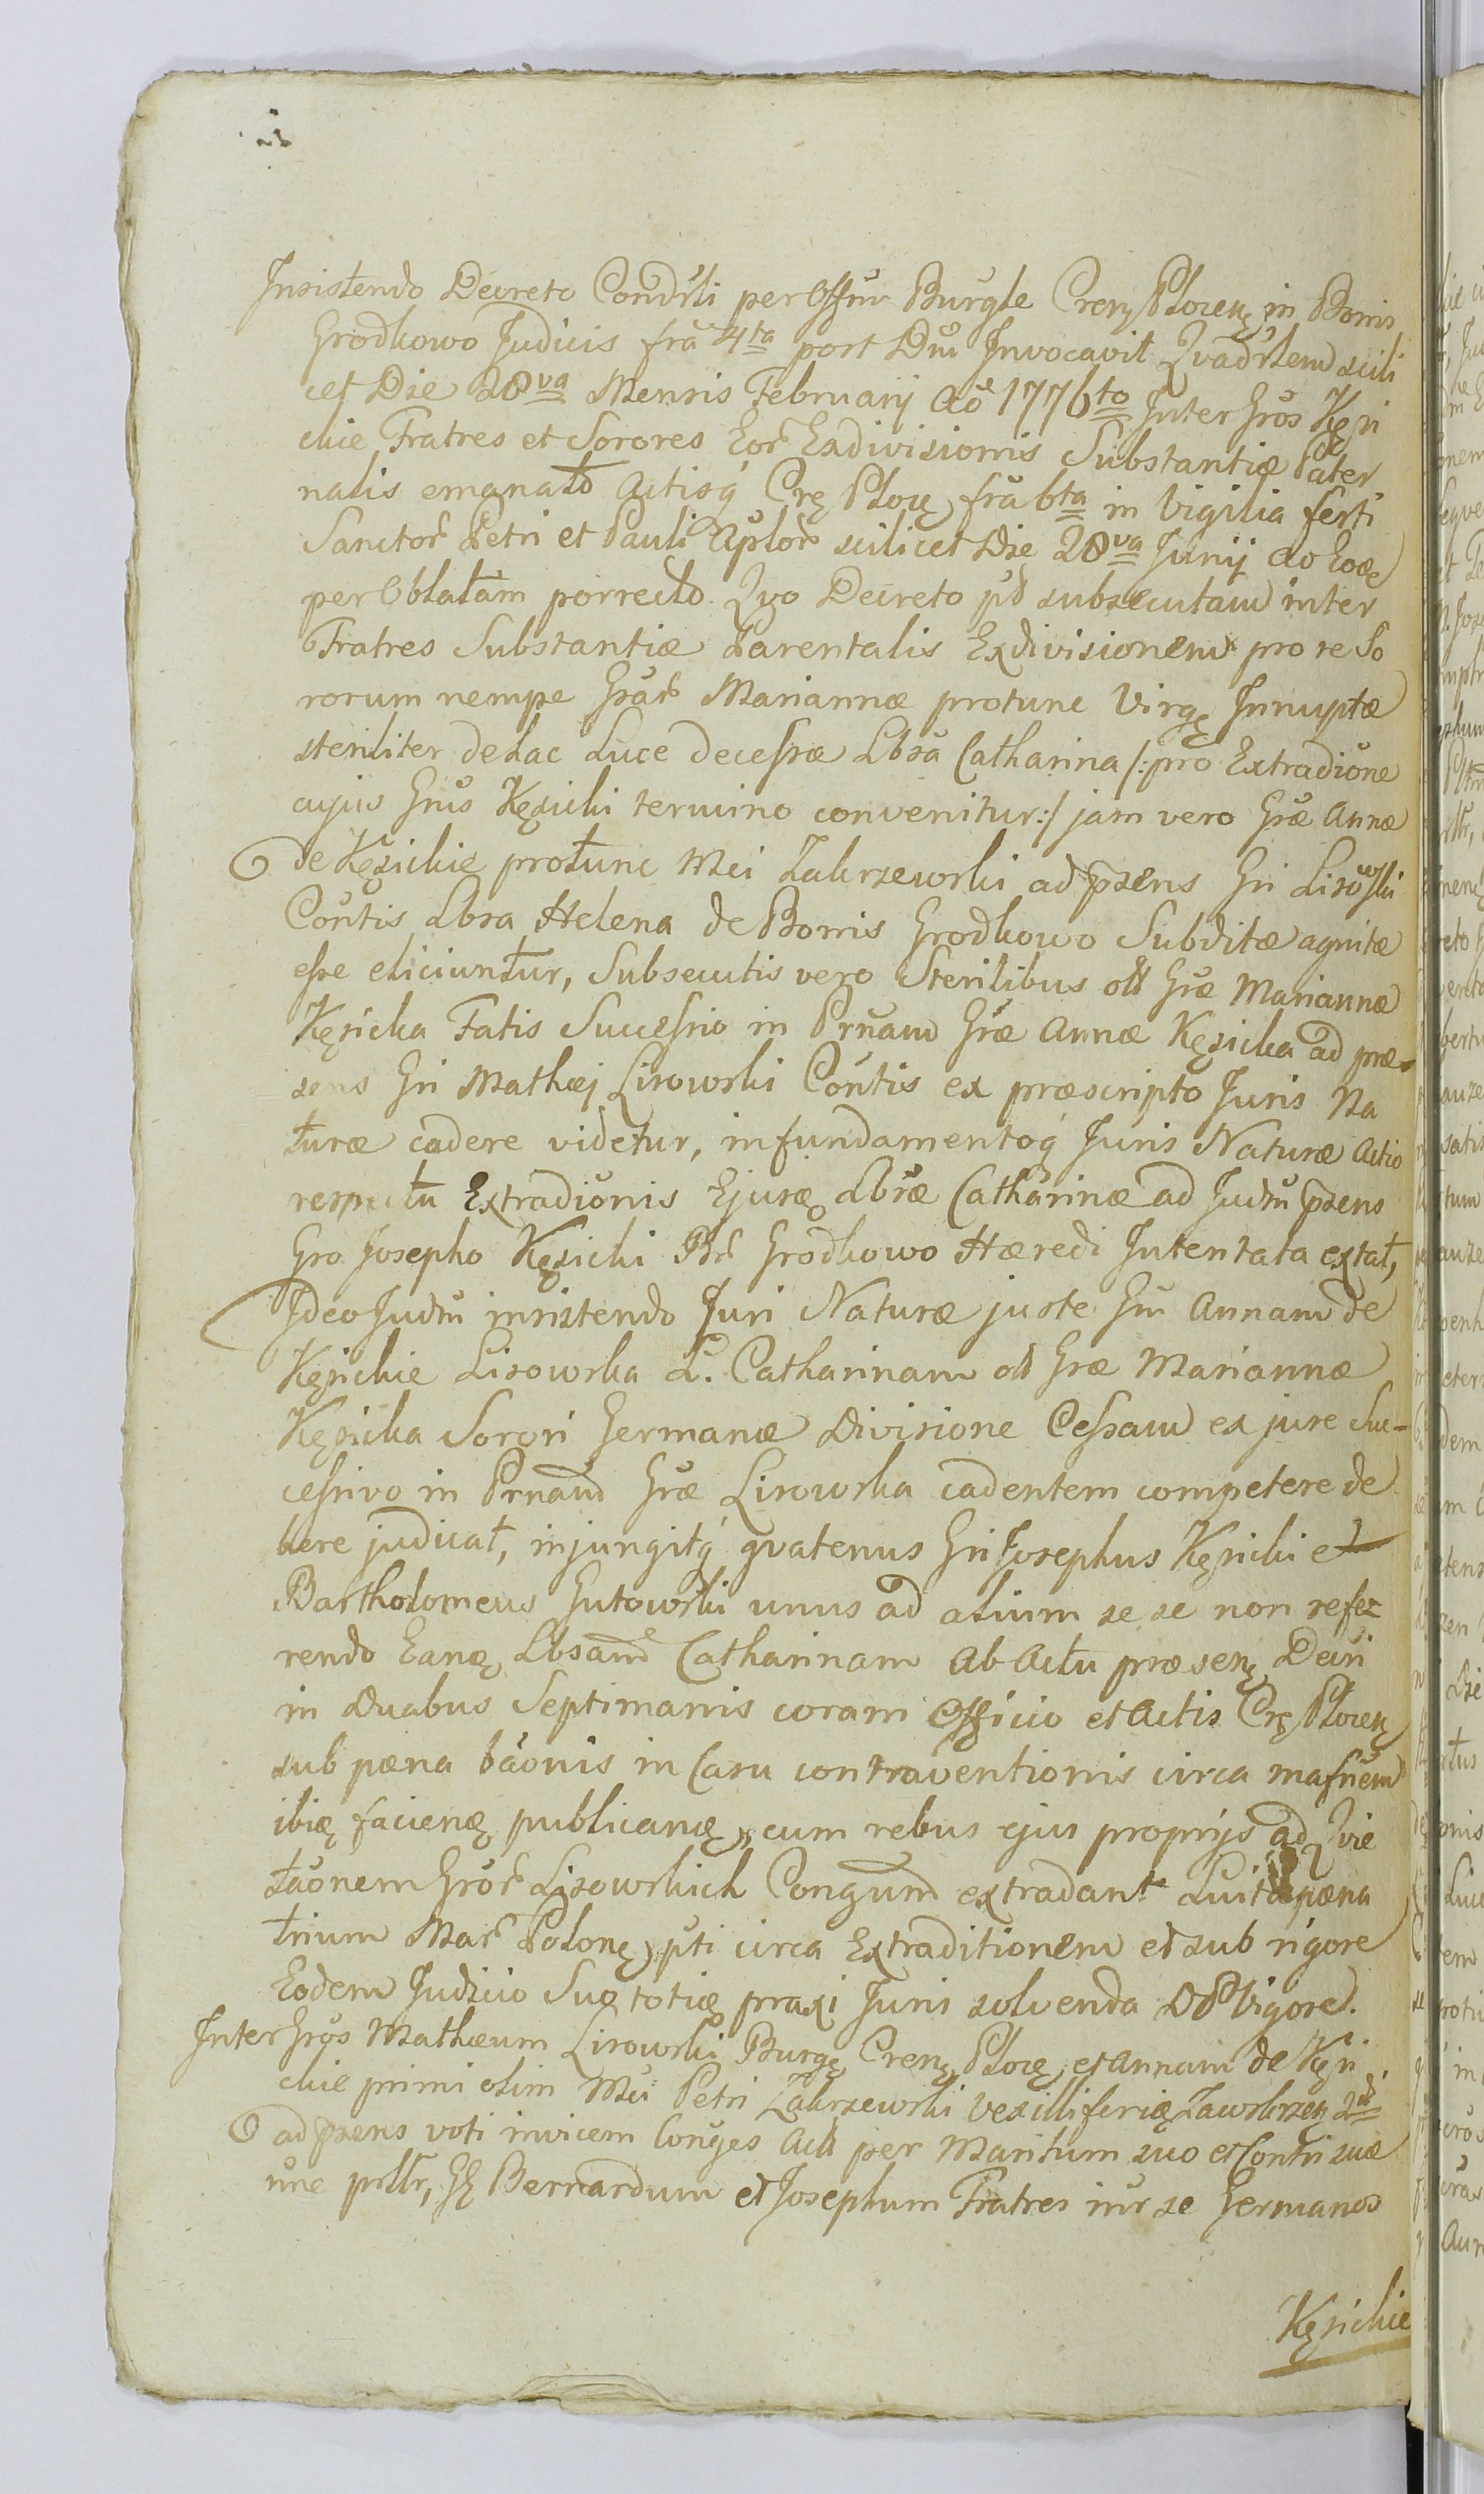 Insistendo Decreto Condrli per Offm Burgle Cren Plocen in Bonis
Grodkowo Judicis fra 4ta post Dm Invocavit Qvadrlem scili
cet Die 28va Mensis Februarij Aõ 1776to Inter Gros Kęsi
ckie Fratres et Sorores Eor Exdivisionis Substantiæ Pater
nalis emanato Actisq Crę Plocę fra 6ta in Vigilia festi
Sanctor Petri et Pauli Aplor scilicet Die 28va Junij Ao Eode
per Oblatam porrecto. Qvo Decreto pt subsecutam inter
Fratres Substantiæ Parentalis Exdivisionem pro re So
rorum nempe Grar Mariannæ protunc Virgę Innuptæ
steriliter de hac Luce decessæ Lbsa Catharina /: pro Extradione
cujus Grus Kęsicki termino convenitur :/ jam vero Græ Annæ
de Kęsickie protunc Mci Zakrzewski ad præsens Gri Lisowski
Contis Lbsa Helena de Bonis Grodkowo Subditæ agnitæ
esse eliciuntur, Subsecutis vero Sterilibus oll Græ Mariannæ
Kęsicka Fatis Successio in Prnam Græ Annæ Kęsicka ad præ-
sens Gri Mathæj Lisowski Contis ex præscripto Juris Na
turæ cadere videtur, in fundamentoq Juris Naturæ Actio
respectu Extradionis Ejusdę Lbsæ Catharinæ ad Judm præsens
Gro Josepho Kęsicki Br Grodkowo Hæredi Intentata extat,
Ideo Judm insistendo Juri Naturæ juste Gm Annam de
Kęsickie Lisowska L. Catharinam oll Græ Mariannæ
Kęsicka Sorori Germanæ Divisione Cessam ex jure Suc-
cessivo in Prnam Græ Lisowska cadentem competere de
bere judicat, injungitq qvatenus Gri Josephus Kęsicki et
Bartholomeus Gutowski unus ad alium se se non refe-
rendo Eandę Lbsam Catharinam ab Actu præsenę Decri
in Duabus Septimanis coram Officio et Actis Crę Plocen
sub pæna baonis in Casu contraventionis circa mafnem
ibię facienę publicanę, cum rebus ejus proprijs ad Qvie
taonem Gror Lisowskich Congum extradant Luita pæna
trium Mar Polonę, pti circa Extraditionem et sub rigore
Eodem Judicio Suę totię praxi Juris solvenda DP Vigore.
Inter Gros Mathæum Lisowski Burgę Crenę Plocę, et Annam de Kęsi
ckie primi olim Mci Petri Zakrzewski Vexilliferię Zawskrzen 2di
ad præsens voti invicem Conges Actt per Maritum suo et Contis suæ
nne prttr, Gę Bernardum et Josephum Fratres intr se Germanos
Kęsickie